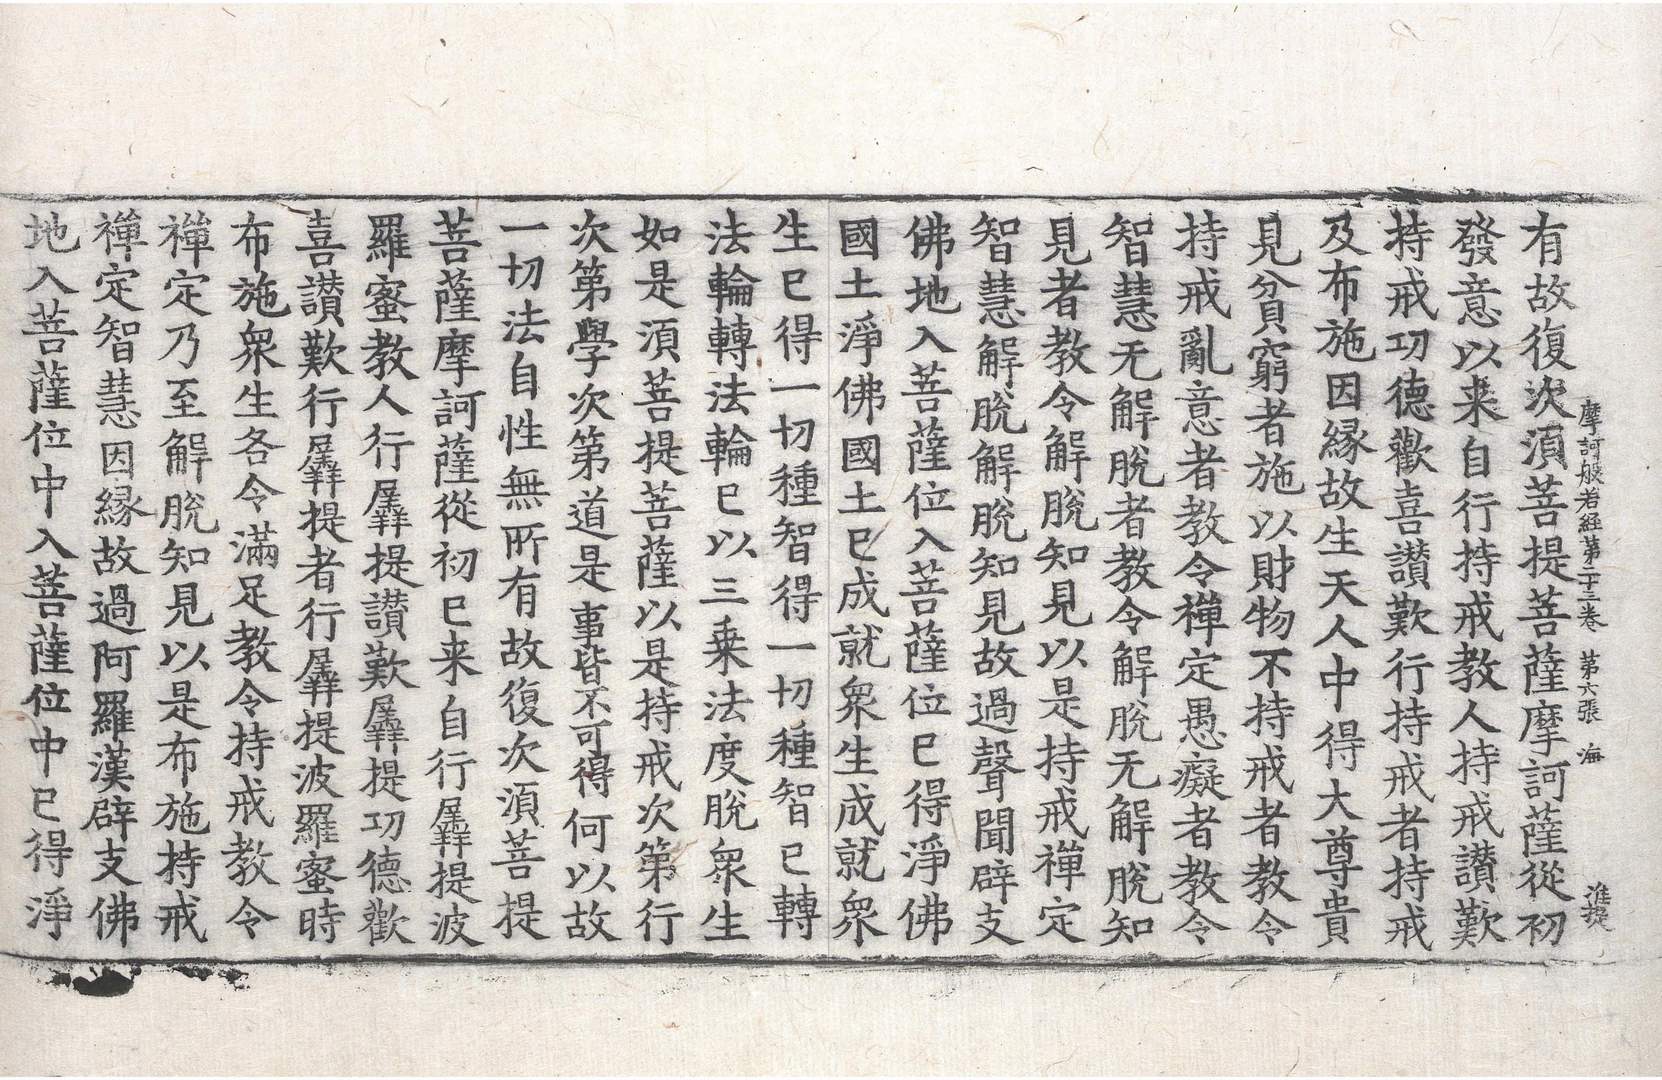 摩訶般若經第二十三卷 第六張 海
淮提
有故復次湏菩提菩薩摩訶薩從初
發意以来自行持戒教人持戒讃歎
持戒功德歡喜讃歎行持戒者持戒
及布施因緣故生天人中得大尊貴
見貧窮者施以財物不持戒者教令
持戒亂意者教令禪定愚癡者教令
智慧无解脫者教令解脫无解脫知
見者教令解脫知見以是持戒禪定
智慧解脫解脫知見故過聲聞辟支
佛地入菩薩位入菩薩位已得淨佛
國土淨佛國土已成就衆生成就衆
生已得一切種智得一切種智已轉
法輪轉法輪已以三乗法度脫衆生
如是湏菩提菩薩以是持戒次第行
次第學次第道是事皆不可得何以故
一切法自性無所有故復次湏菩提
菩薩摩訶薩從初已来自行羼提波
羅蜜教人行羼提讃歎羼提功德歡
喜讃歎行羼提者行羼提波羅蜜時
布施衆生各令滿足教令持戒教令
禪定乃至解脫知見以是布施持戒
禪定智慧因緣故過阿羅漢辟支佛
地入菩薩位中入菩薩位中已得淨